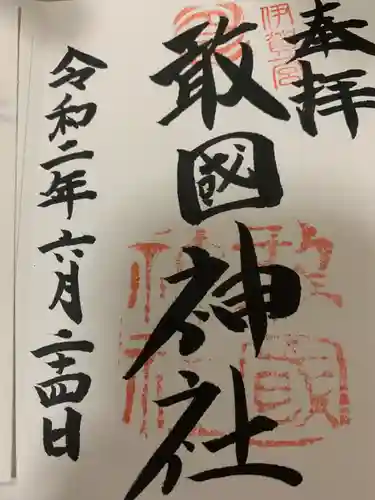 奉拝
伊賀一宮
敢國神社
敢國神社
令和二年六月二十四日